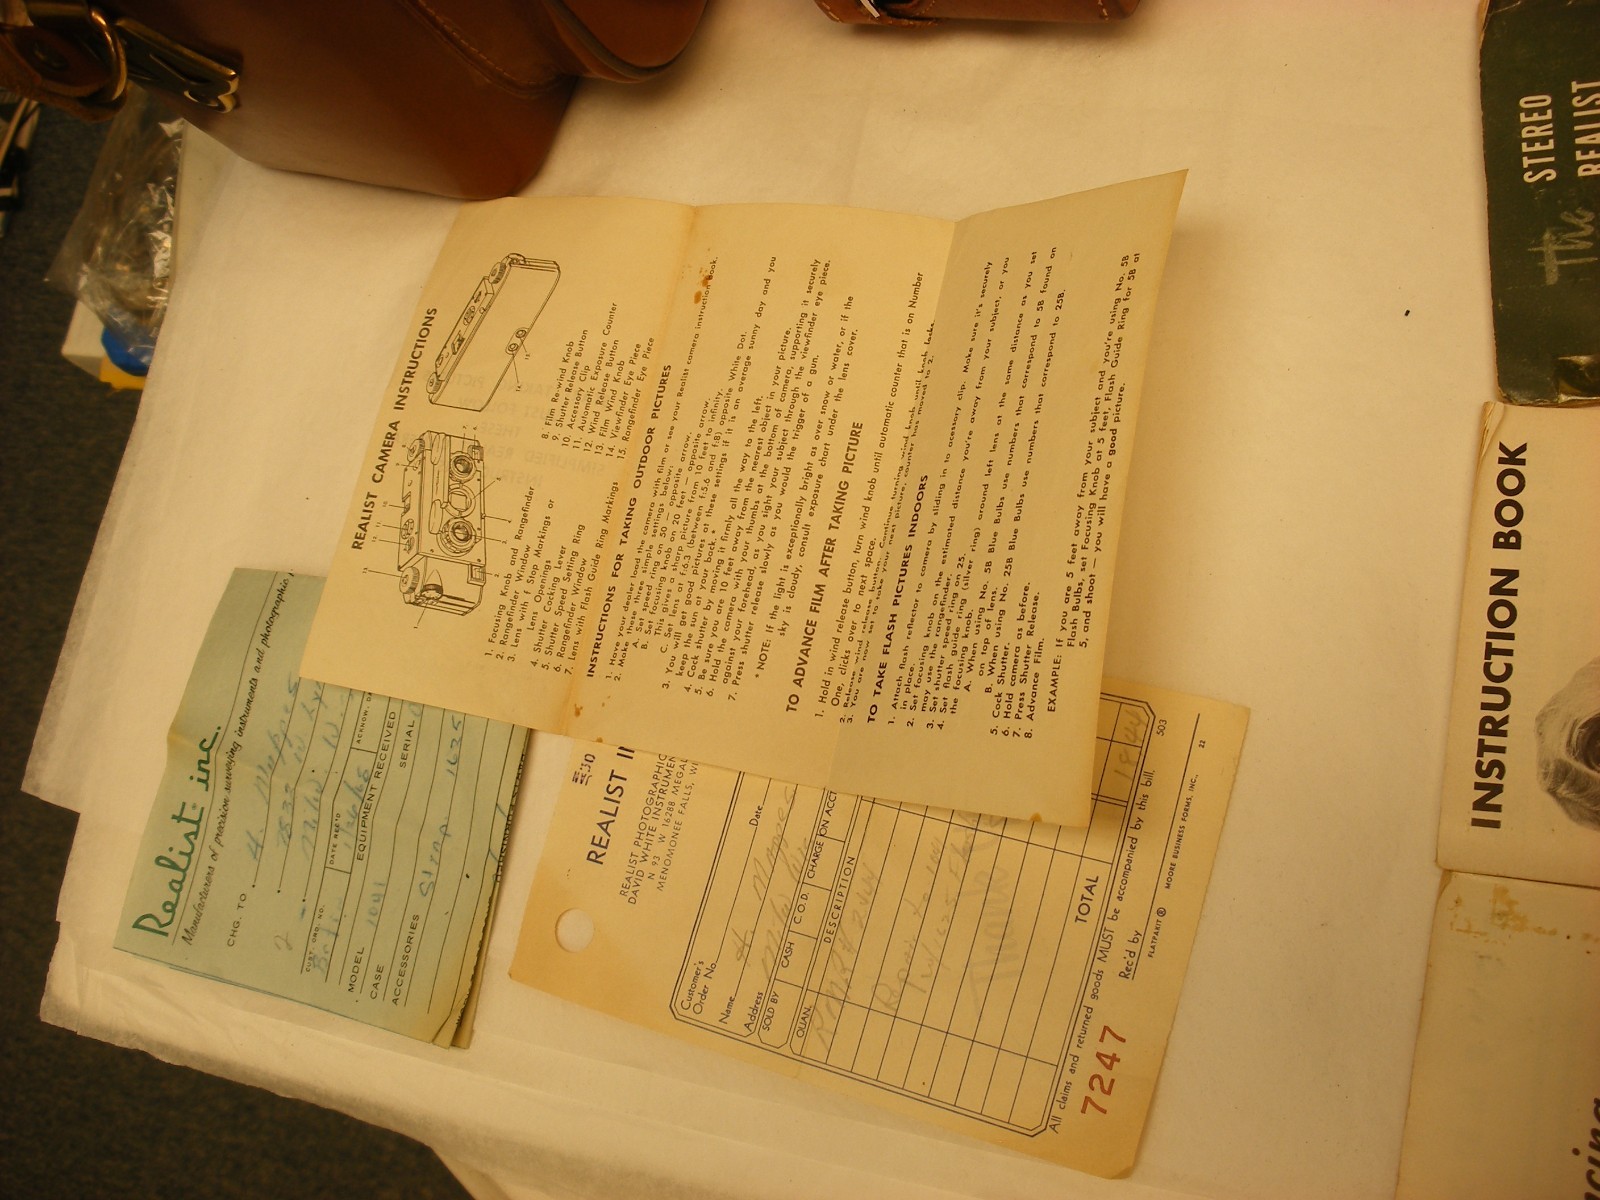 REALIST CAMERA INSTRUCTIONS
1. Focusing Knob and Rangefinder
2. Rangefinder Window
3. Lens with f Stop Markings or
Lens Openings
4. Shutter Cocking Lever
5. Shutter Speed Setting Ring
6. Rangefinder Window
7. Lens with Flash Guide Ring Markings
8. Film Re-wind Knob
9. Shutter Release Knob
10. Accessory Clip
11. Automatic Exposure Counter
12. Wind Release Button
13. Film Wind Knob
14. Viewfinder Eye Piece
15. Rangefinder Eye Piece
INSTRUCTIONS FOR TAKING OUTDOOR PICTURES
1. Have your dealer load the camera with film or see your Realist camera instruction book.
2. Make these three simple settings below:
A. Set speed ring on 50 — opposite arrow.
B. Set focusing knob on 20 feet — opposite arrow.
This gives a sharp picture from 10 feet to infinity.
C. Set lens at f:6.3 (between f:5.6 and f:8) opposite White Dot.
3. You will get good pictures at these settings if it is an average sunny day and you
keep the sun at your back.*
4. Cock shutter by moving it firmly all the way to the left.
5. Be sure you are 10 feet away from the nearest object in your picture.
6. Hold the camera with your thumbs at the bottom of camera, supporting it securely
against your forehead, as you sight your subject through the viewfinder eye piece.
7. Press shutter release slowly as you would the trigger of a gun.
* NOTE: If the light is exceptionally bright as over snow or water, or if the
sky is cloudy, consult exposure chart under the lens cover.
TO ADVANCE FILM AFTER TAKING PICTURE
1. Hold in wind release button, turn wind knob until automatic counter that is on Number
One, clicks over to next space.
2. Release wind release button. Continue turning wind knob until knob locks.
3. You are now set to take your next picture, counter has moved to 2.
TO TAKE FLASH PICTURES INDOORS
1. Attach flash reflector to camera by sliding in to acessory clip. Make sure it's securely
in place.
2. Set focusing knob on the estimated distance you're away from your subject, or you
may use the rangefinder.
3. Set shutter speed ring on 25.
4. Set flash guide ring (silver ring) around left lens at the same distance as you set
the focusing knob.
A. When using No. 5B Blue Bulbs use numbers that correspond to 5B found on
on top of lens.
B. When using No. 25B Blue Bulbs use numbers that correspond to 25B.
5. Cock Shutter.
6. Hold camera as before.
7. Press Shutter Release.
8. Advance Film.
EXAMPLE: If you are 5 feet away from your subject and you're using No. 5B
Flash Bulbs, set Focusing Knob at 5 feet, Flash Guide Ring for 5B at
5, and shoot — you will have a good picture.
Realist inc.
Manufacturers of precision surveying instruments and photographic
CHG. TO
CUST. ORD. NO.
DATE REC'D
ACKNOW.
EQUIPMENT RECEIVED
MODEL 1041
SERIAL
CASE
ACCESSORIES Strap
REALIST
REALIST PHOTOGRAPHIC
DAVID WHITE INSTRUMEN
N 93 W 16288 MEGAL
MENOMONEE FALLS, WI
Customer's
Order No.
Date
Name
Address
SOLD BY
CASH
C.O.D.
CHARGE
ON ACCT
QUAN.
DESCRIPTION
TOTAL
All claims and returned goods MUST be accompanied by this bill.
7247
Rec'd by
503
FLATPAKIT ®
MOORE BUSINESS FORMS, INC.,
22
The
STEREO
REALIST
INSTRUCTION BOOK